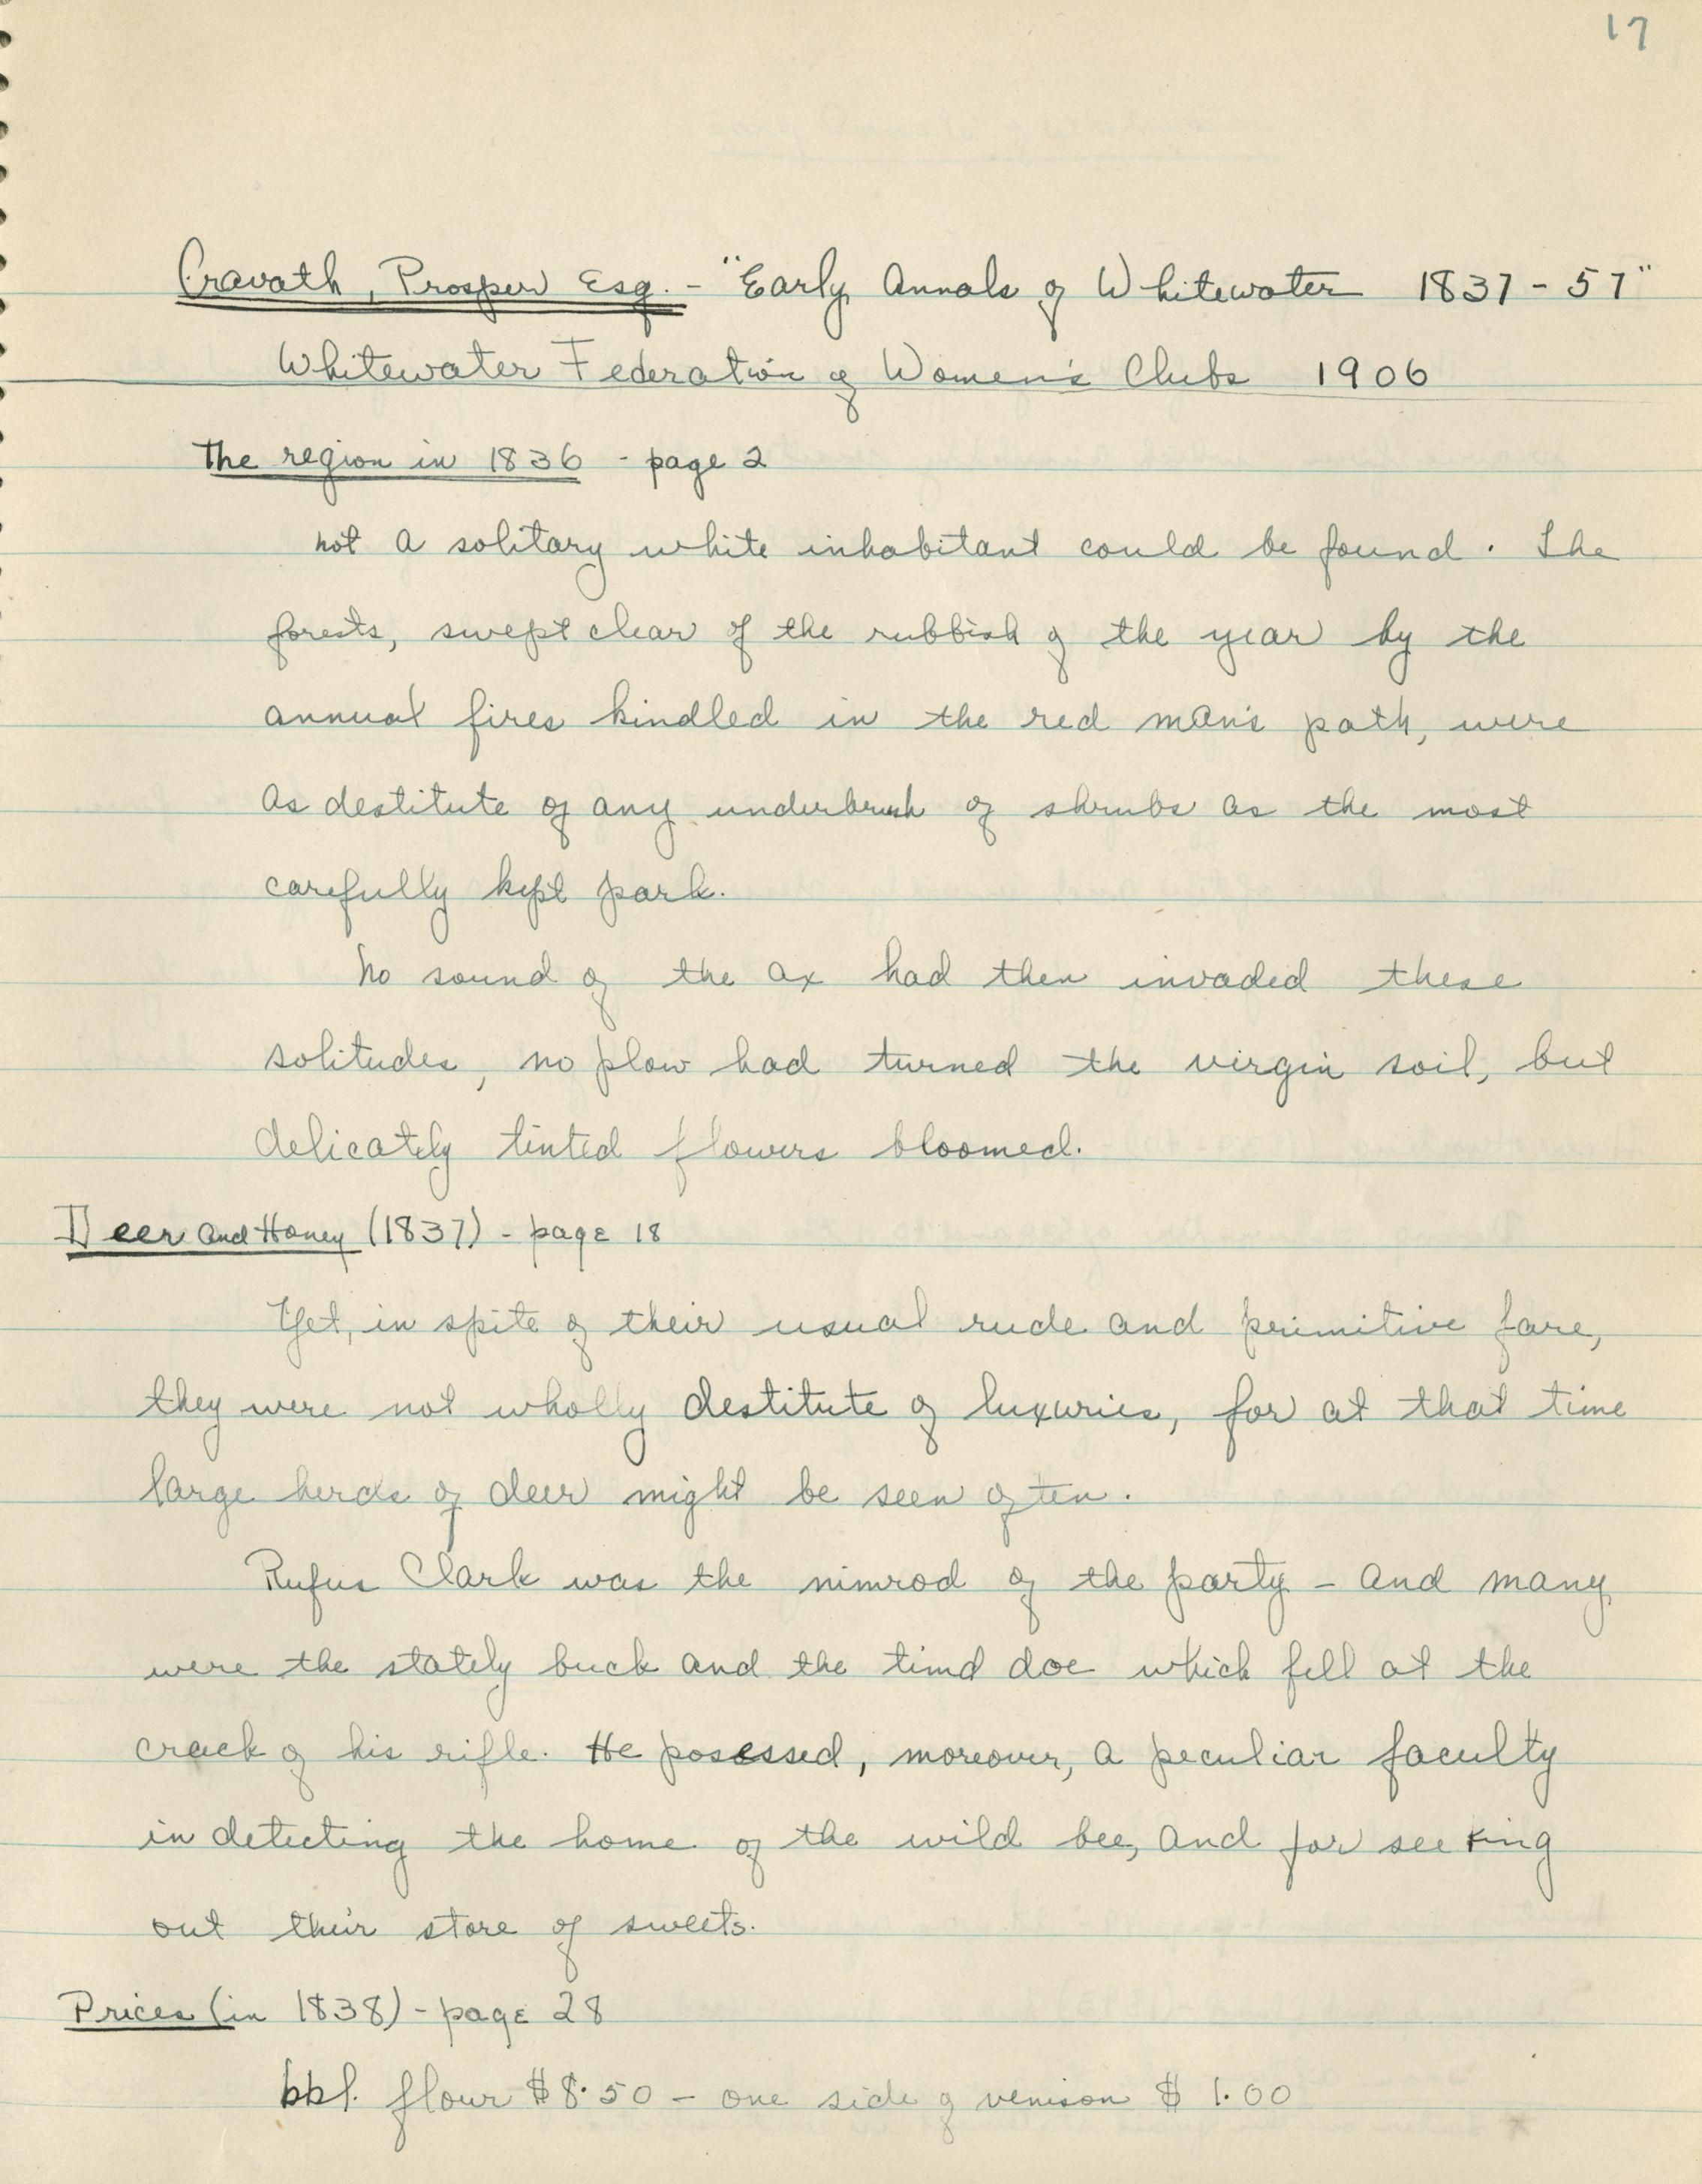 17
Cravath, Prosper Esq. - "Early Annals of Whitewater 1837-57"
Whitewater Federation of Women's Clubs 1906
The region in 1836 - page 2
not a solitary white inhabitant could be found. The
forests, swept clear of the rubbish of the year by the
annual fires kindled in the red man's path, were
as destitute of any underbrush of shrubs as the most
carefully kept park.
No sound of the ax had then invaded these
solitudes, no plow had turned the virgin soil, but
delicately tinted flowers bloomed.
Deer and Honey (1837) - page 18
Yet, in spite of their usual rude and primitive fare,
they were not wholly destitute of luxuries, for at that time
large herds of deer might be seen often.
Rufus Clark was the nimrod of the party - and many
were the stately buck and the timd doe which fell at the
crack of his rifle. He posessed, moreover, a peculiar faculty
in detecting the home of the wild bee, and for seeking
out their store of sweets.
Prices (in 1838) - page 28
bbl. flour $8.50 - one side of venison $1.00